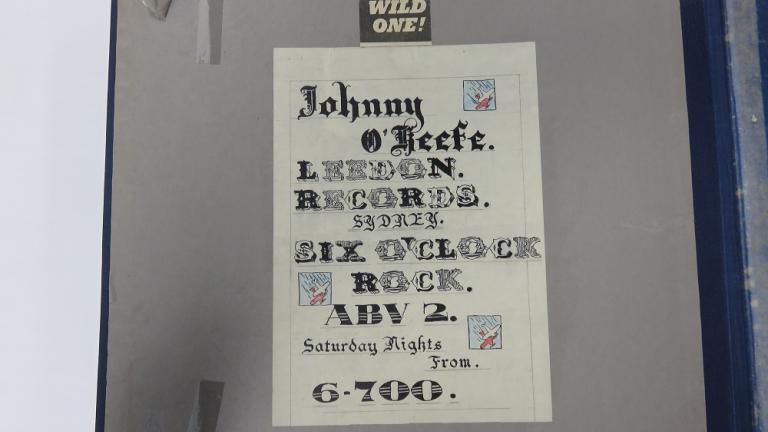 WILD
ONE!
Johnny
O'Keefe.
LEEDON.
RECORDS.
SYDNEY.
SIX O'CLOCK
ROCK.
ABV 2.
Saturday Nights
From.
6-700.